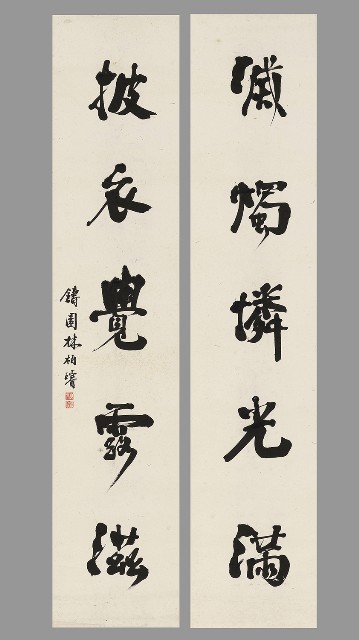 滅燭憐光滿
披衣覺露滋
鑄園林柏壽